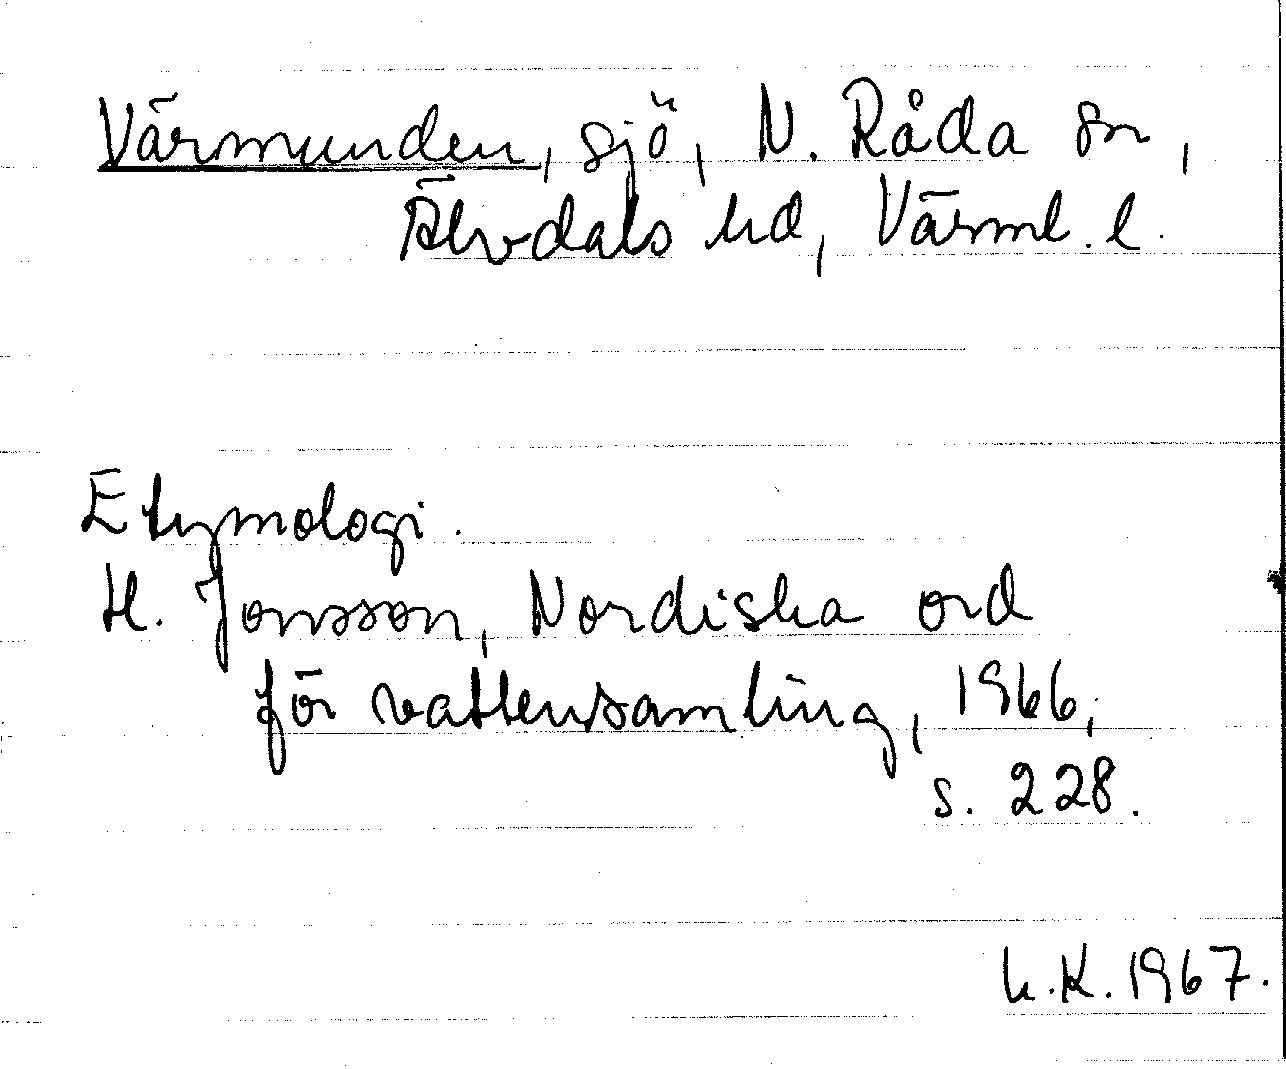 Värmunden, sjö, N. Råda sn,
Älvdals hd, Värml. l.
Etymologi.
H. Jonsson, Nordiska ord
för vattensamling, 1966,
s. 228.
L.K. 1967.